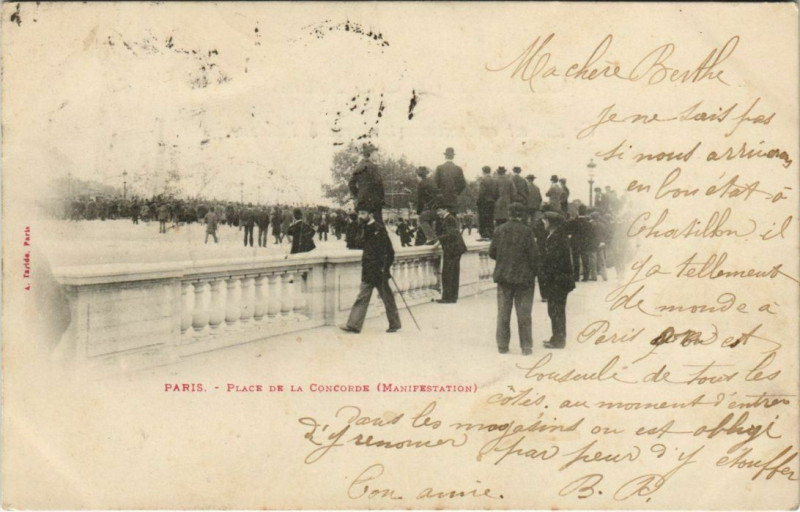 Ma chère Berthe
je ne sais pas
si nous arriverons
en bon état à
Chatillon il
y a tellement
de monde à
Paris on est
bousculé de tous les
côtés. au moment d'entrer
Dans les magasins on est obligé
d'y renoncer par peur d'y étouffer
Ton amie. B. R.
A. Taride, Paris
PARIS. - PLACE DE LA CONCORDE (MANIFESTATION)